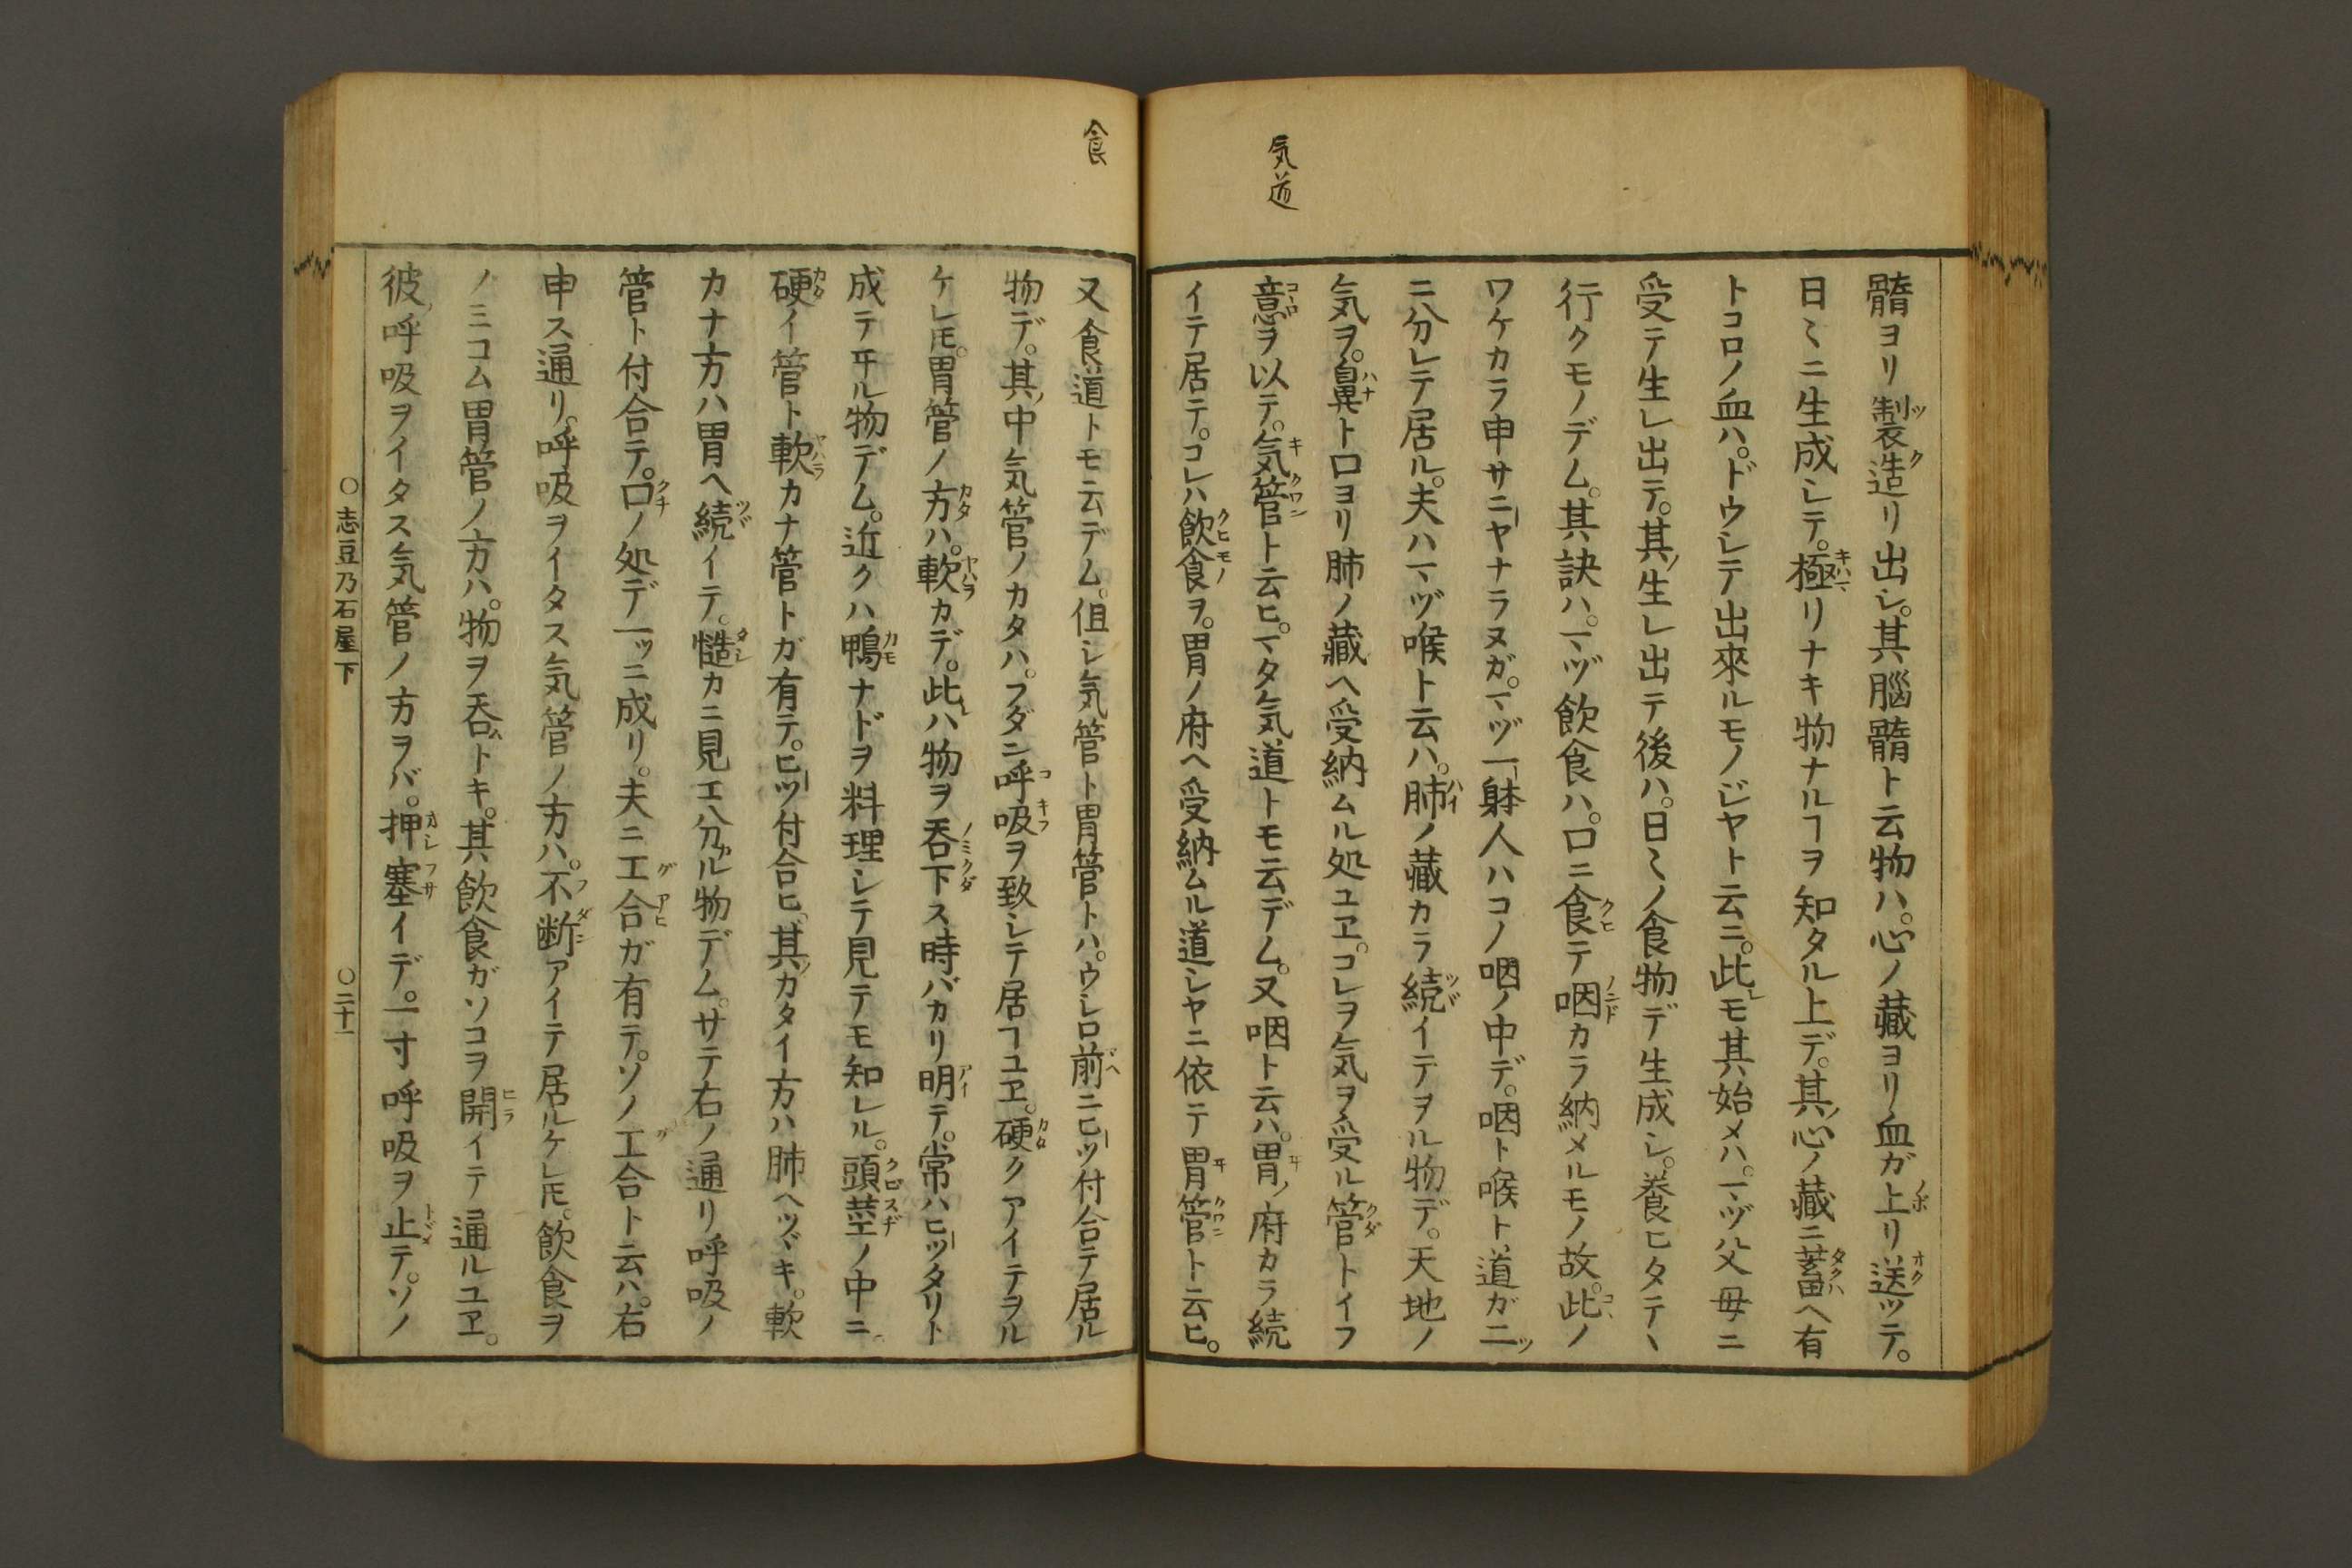 気道
髓ヨリ製造リ出シ。其腦髓ト云物ハ。心ノ藏ヨリ血ガ上リ送ツテ。
日〻ニ生成シテ。極リナキ物ナルヿヲ知タル上デ。其心ノ藏ニ蓄ヘ有
トコロノ血ハ。ドウシテ出來ルモノジヤト云ニ。此モ其始メハ。マヅ父母ニ
受テ生レ出テ。其生レ出テ後ハ。日〻ノ食物デ生成シ。養ヒタテヽ
行クモノデム。其訣ハ。マヅ飲食ハ。口ニ食テ咽カラ納メルモノ故。此ノ
ワケカラ申サニヤナラヌガ。マヅ一躰人ハコノ咽ノ中デ。咽ト喉ト道ガ二ツ
ニ分レテ居ル。夫ハマヅ喉ト云ハ。肺ノ藏カラ続イテヲル物デ。天地ノ
気ヲ。鼻ト口ヨリ肺ノ藏ヘ受納ムル処ユヱ。コレヲ気ヲ受ル管トイフ
意ヲ以テ。気管ト云ヒ。マタ気道トモ云デム。又咽ト云ハ。胃ノ府カラ続
イテ居テ。コレハ飲食ヲ。胃ノ府ヘ受納ムル道シヤニ依ニテ胃管ト云ヒ。
食
又食道トモ云デム。但シ気管ト胃管トハ。ウシロ前ニヒツ付合テ居ル
物デ。其中気管ノカタハ。フダン呼吸ヲ致シテ居ヿユヱ。硬クアイテヲル
ケレ𪜈。胃管ノ方ハ。軟カデ。此ハ物ヲ呑下ス時バカリ明テ。常ハヒツタリト
成テヰル物デム。近クハ鴨ナドヲ料理シテ見テモ知レル。頭莖ノ中ニ
硬イ管ト軟カナ管トガ有テ。ヒツ付合ヒ。其カタイ方ハ肺ヘツヾキ。軟
カナ方ハ胃ヘ続イテ。慥カニ見エ分ル物デム。サテ右ノ通リ呼吸ノ
管ト付合テ。口ノ処デ一ツニ成リ。夫ニ工合ガ有テ。ソノ工合ト云ハ。右
申ス通リ。呼吸ヲイタス気管ノ方ハ。不断アイテ居ルケレ𪜈。飲食ヲ
ノミコム胃管ノ方ハ。物ヲ呑トキ。其飲食ガソコヲ開イテ通ルユヱ。
彼呼吸ヲイタス気管ノ方ヲバ。押塞イデ。一寸呼吸ヲ止テ。ソノ
○志豆乃石屋下　○二十一